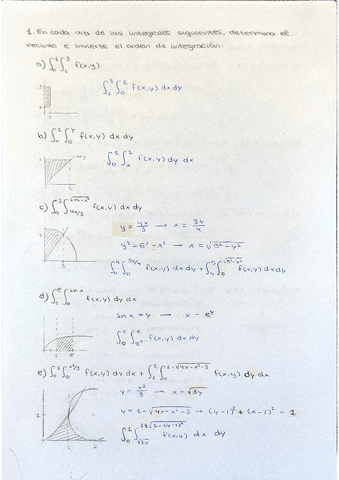 1. En cada una de las integrales siguientes, determina el
recinto e invierte el orden de integración:
a) ∫₀¹ ∫₁³ f(x,y)
∫₁³ ∫₀¹ f(x,y) dx dy
b) ∫₀¹ ∫₀^y f(x,y) dx dy
f(x,y) dy dx
c) ∫₀³ ∫_{4x/3}^{√(25-x²)} f(x,y) dx dy
y = 4x/3 → x = 3y/4
→ x =
∫₀⁴ ∫₀^{3y/4} f(x,y) dx dy + f(x,y) dx dy
d) ∫₁^e ∫₀^{ln x} f(x,y) dy dx
ln x = y → x = e^y
∫₀¹ ∫_{e^y}^e f(x,y) dx dy
e) f(x,y) dy dx + f(x,y) dy dx
y = x²/3 → x = √3y
y = 1-√(4x-x²-3) → (y-1)² + (x-2)² = 1
f(x,y) dx dy